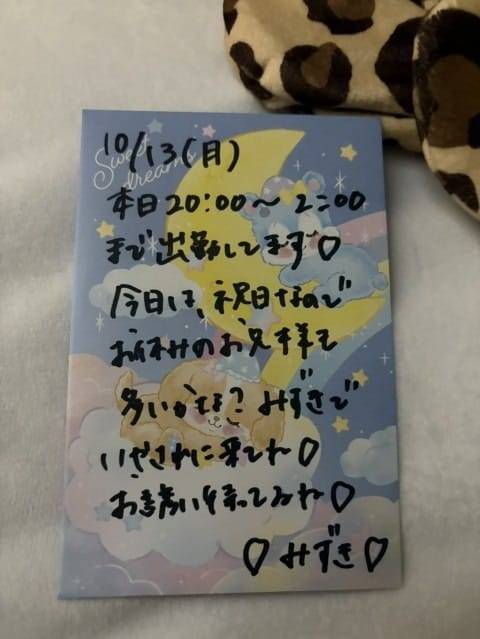 10/13(月)
Sweet
dreams
本日20:00〜2:00
まで出勤してます♡
今日は、祝日なので
お休みのお兄様も
多いかな？みずきで
いやされに来てね♡
お誘い待ってるね♡
♡みずき♡